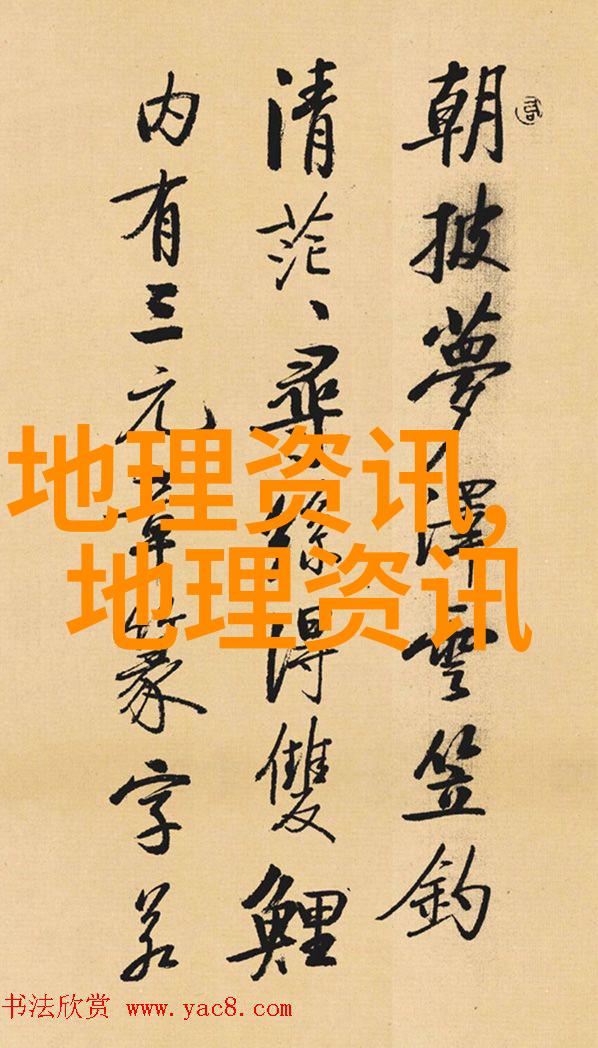 朝披夢澤雲笠釣
清茫、尋絲得雙鯉
内有三元章篆字若
地理资讯,
地理资讯
书法欣赏 www.yac8.com